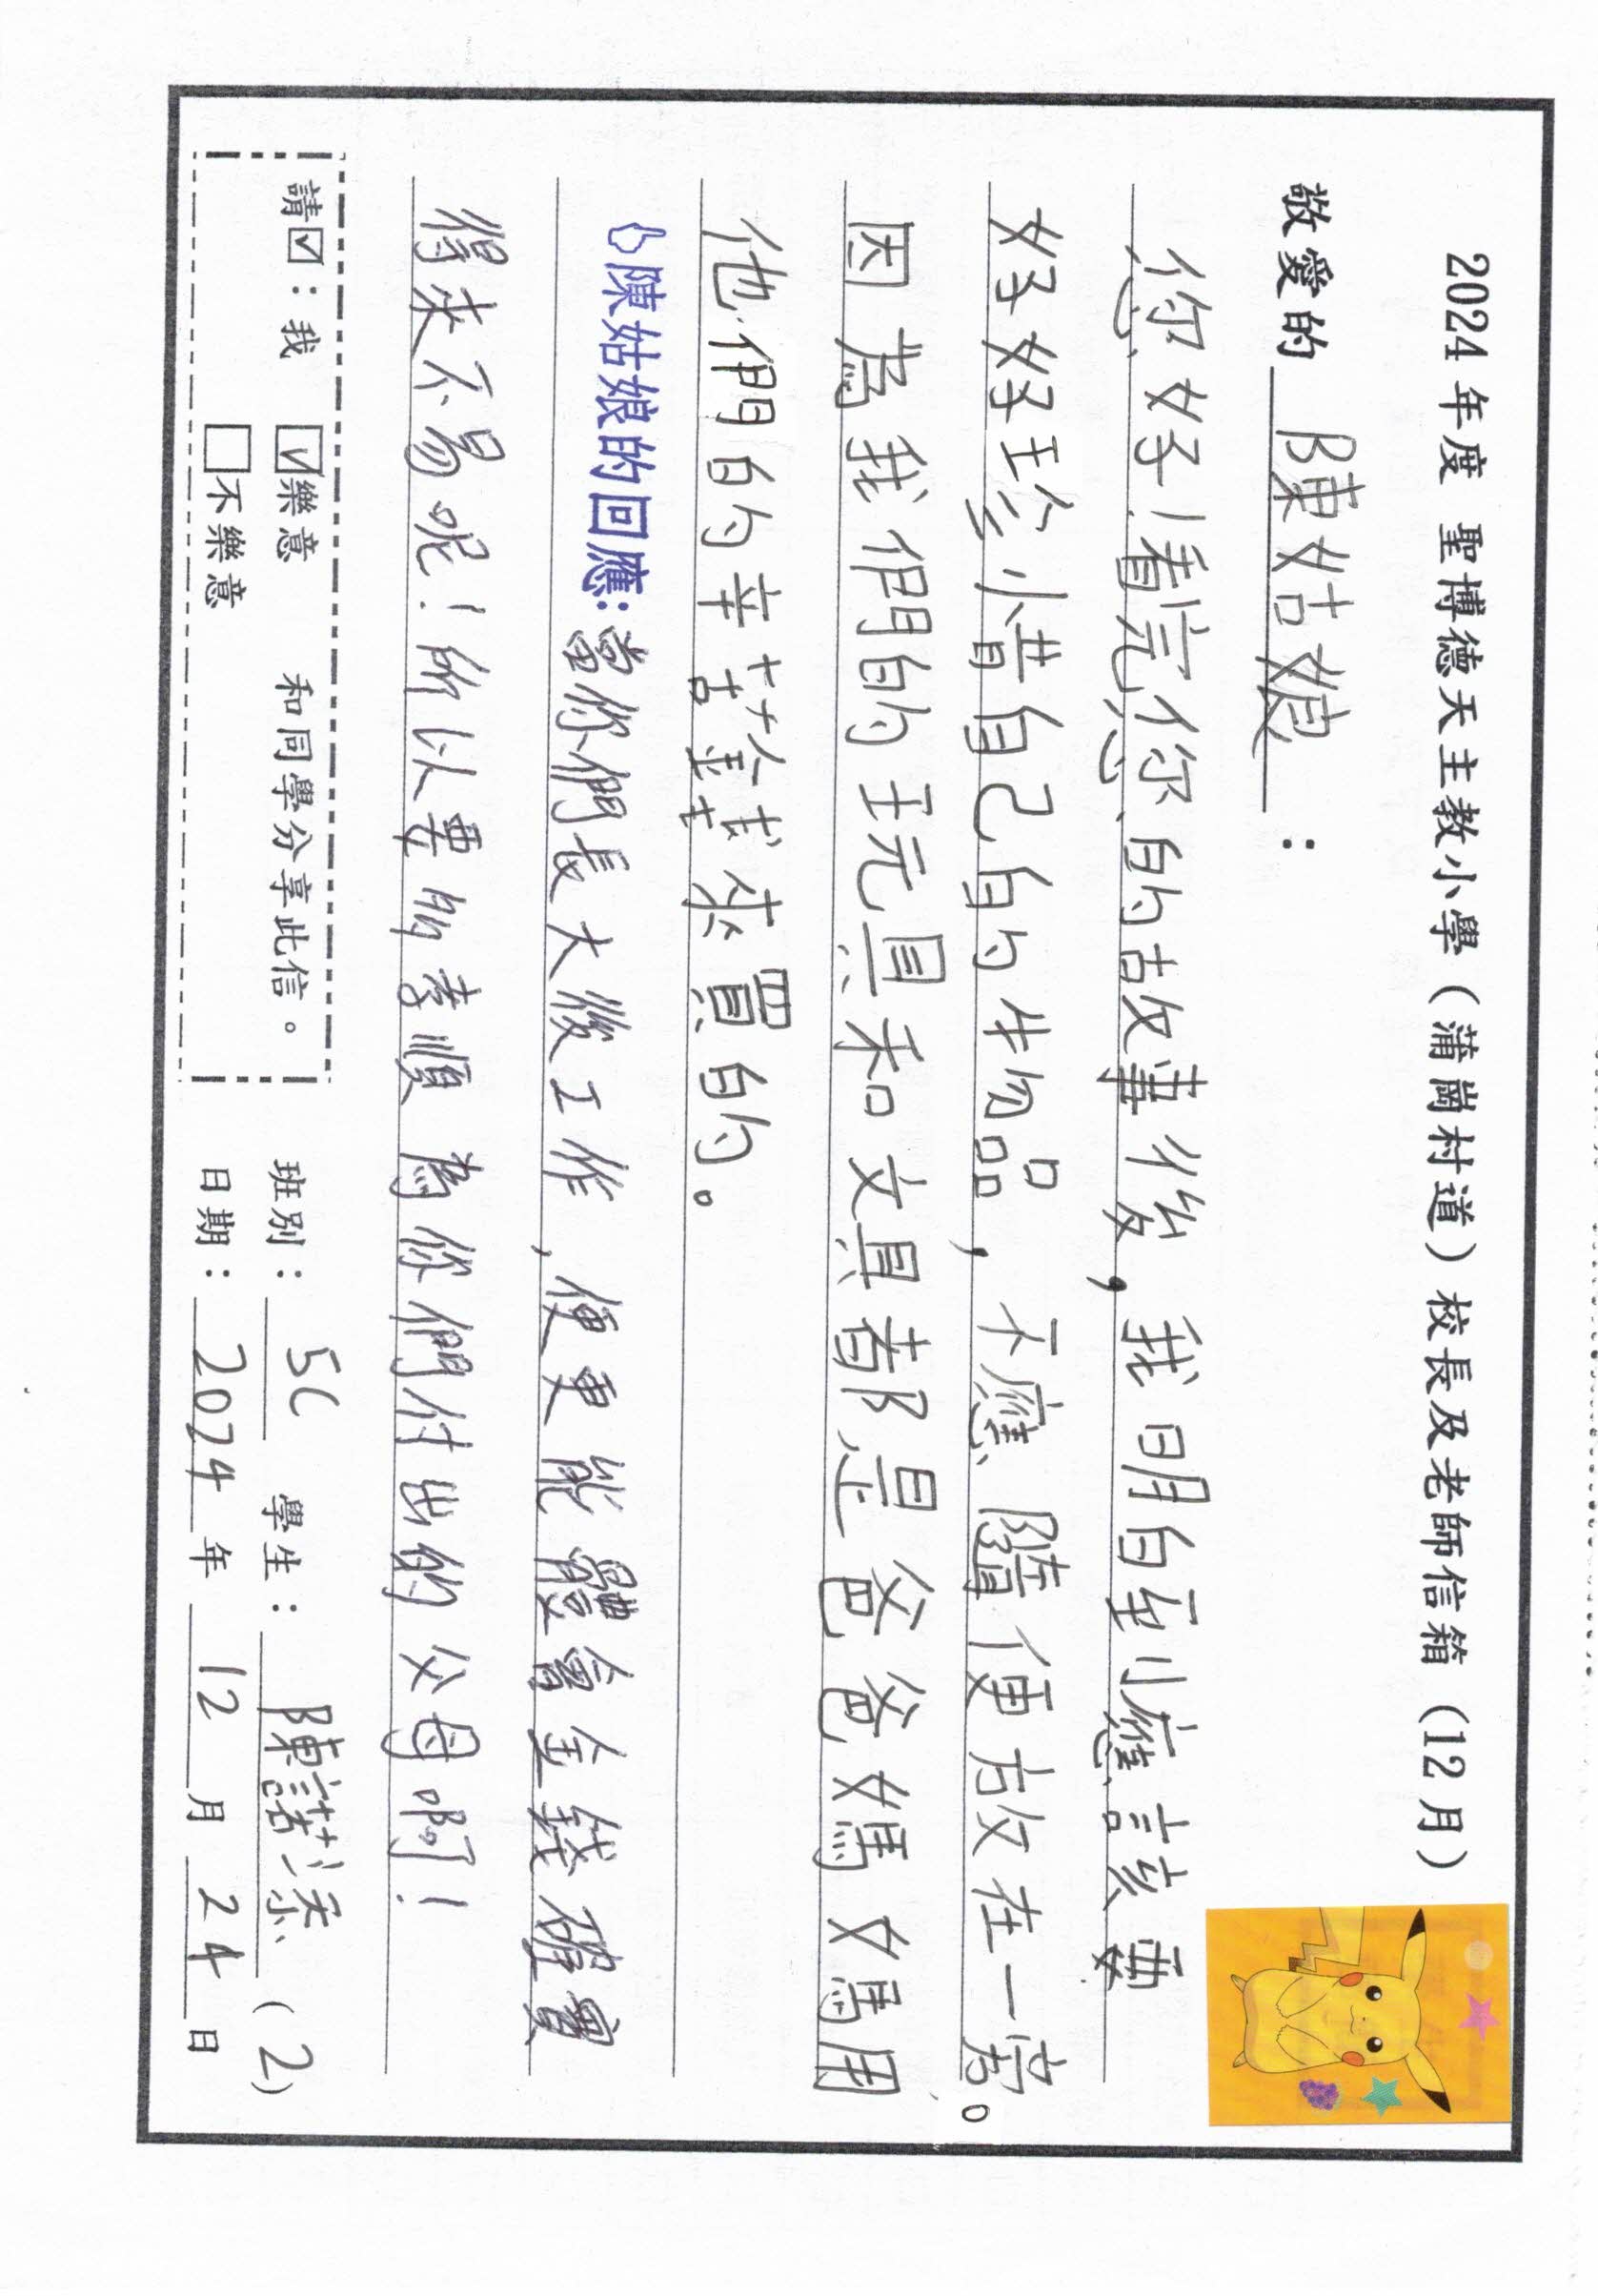 2024 年度 聖博德天主教小學（蒲崗村道）校長及老師信箱（12 月）
敬愛的 陳姑娘 ：
您好！看完您的故事後，我明白到應該要
好好珍惜自己的物品，不應隨便放在一旁。
因為我們的玩具和文具都是爸爸媽媽用
他們的辛苦錢來買的。
陳姑娘的回應：當你們長大後工作，便更能體會金錢確實
得來不易呢！所以要多孝順為你們付出的父母啊！
請☑：我 ☑樂意 和同學分享此信。 班別：5C 學生：陳諾(2)
□不樂意 日期：2024年12月24日